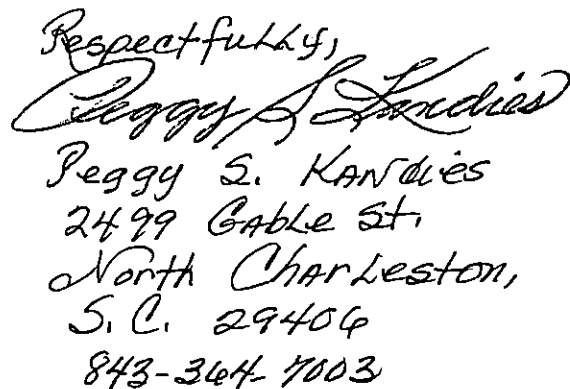 Respectfully,
Peggy S Kandies
Peggy S. Kandies
2499 Gable St.
North Charleston,
S.C. 29406
843-364-7003